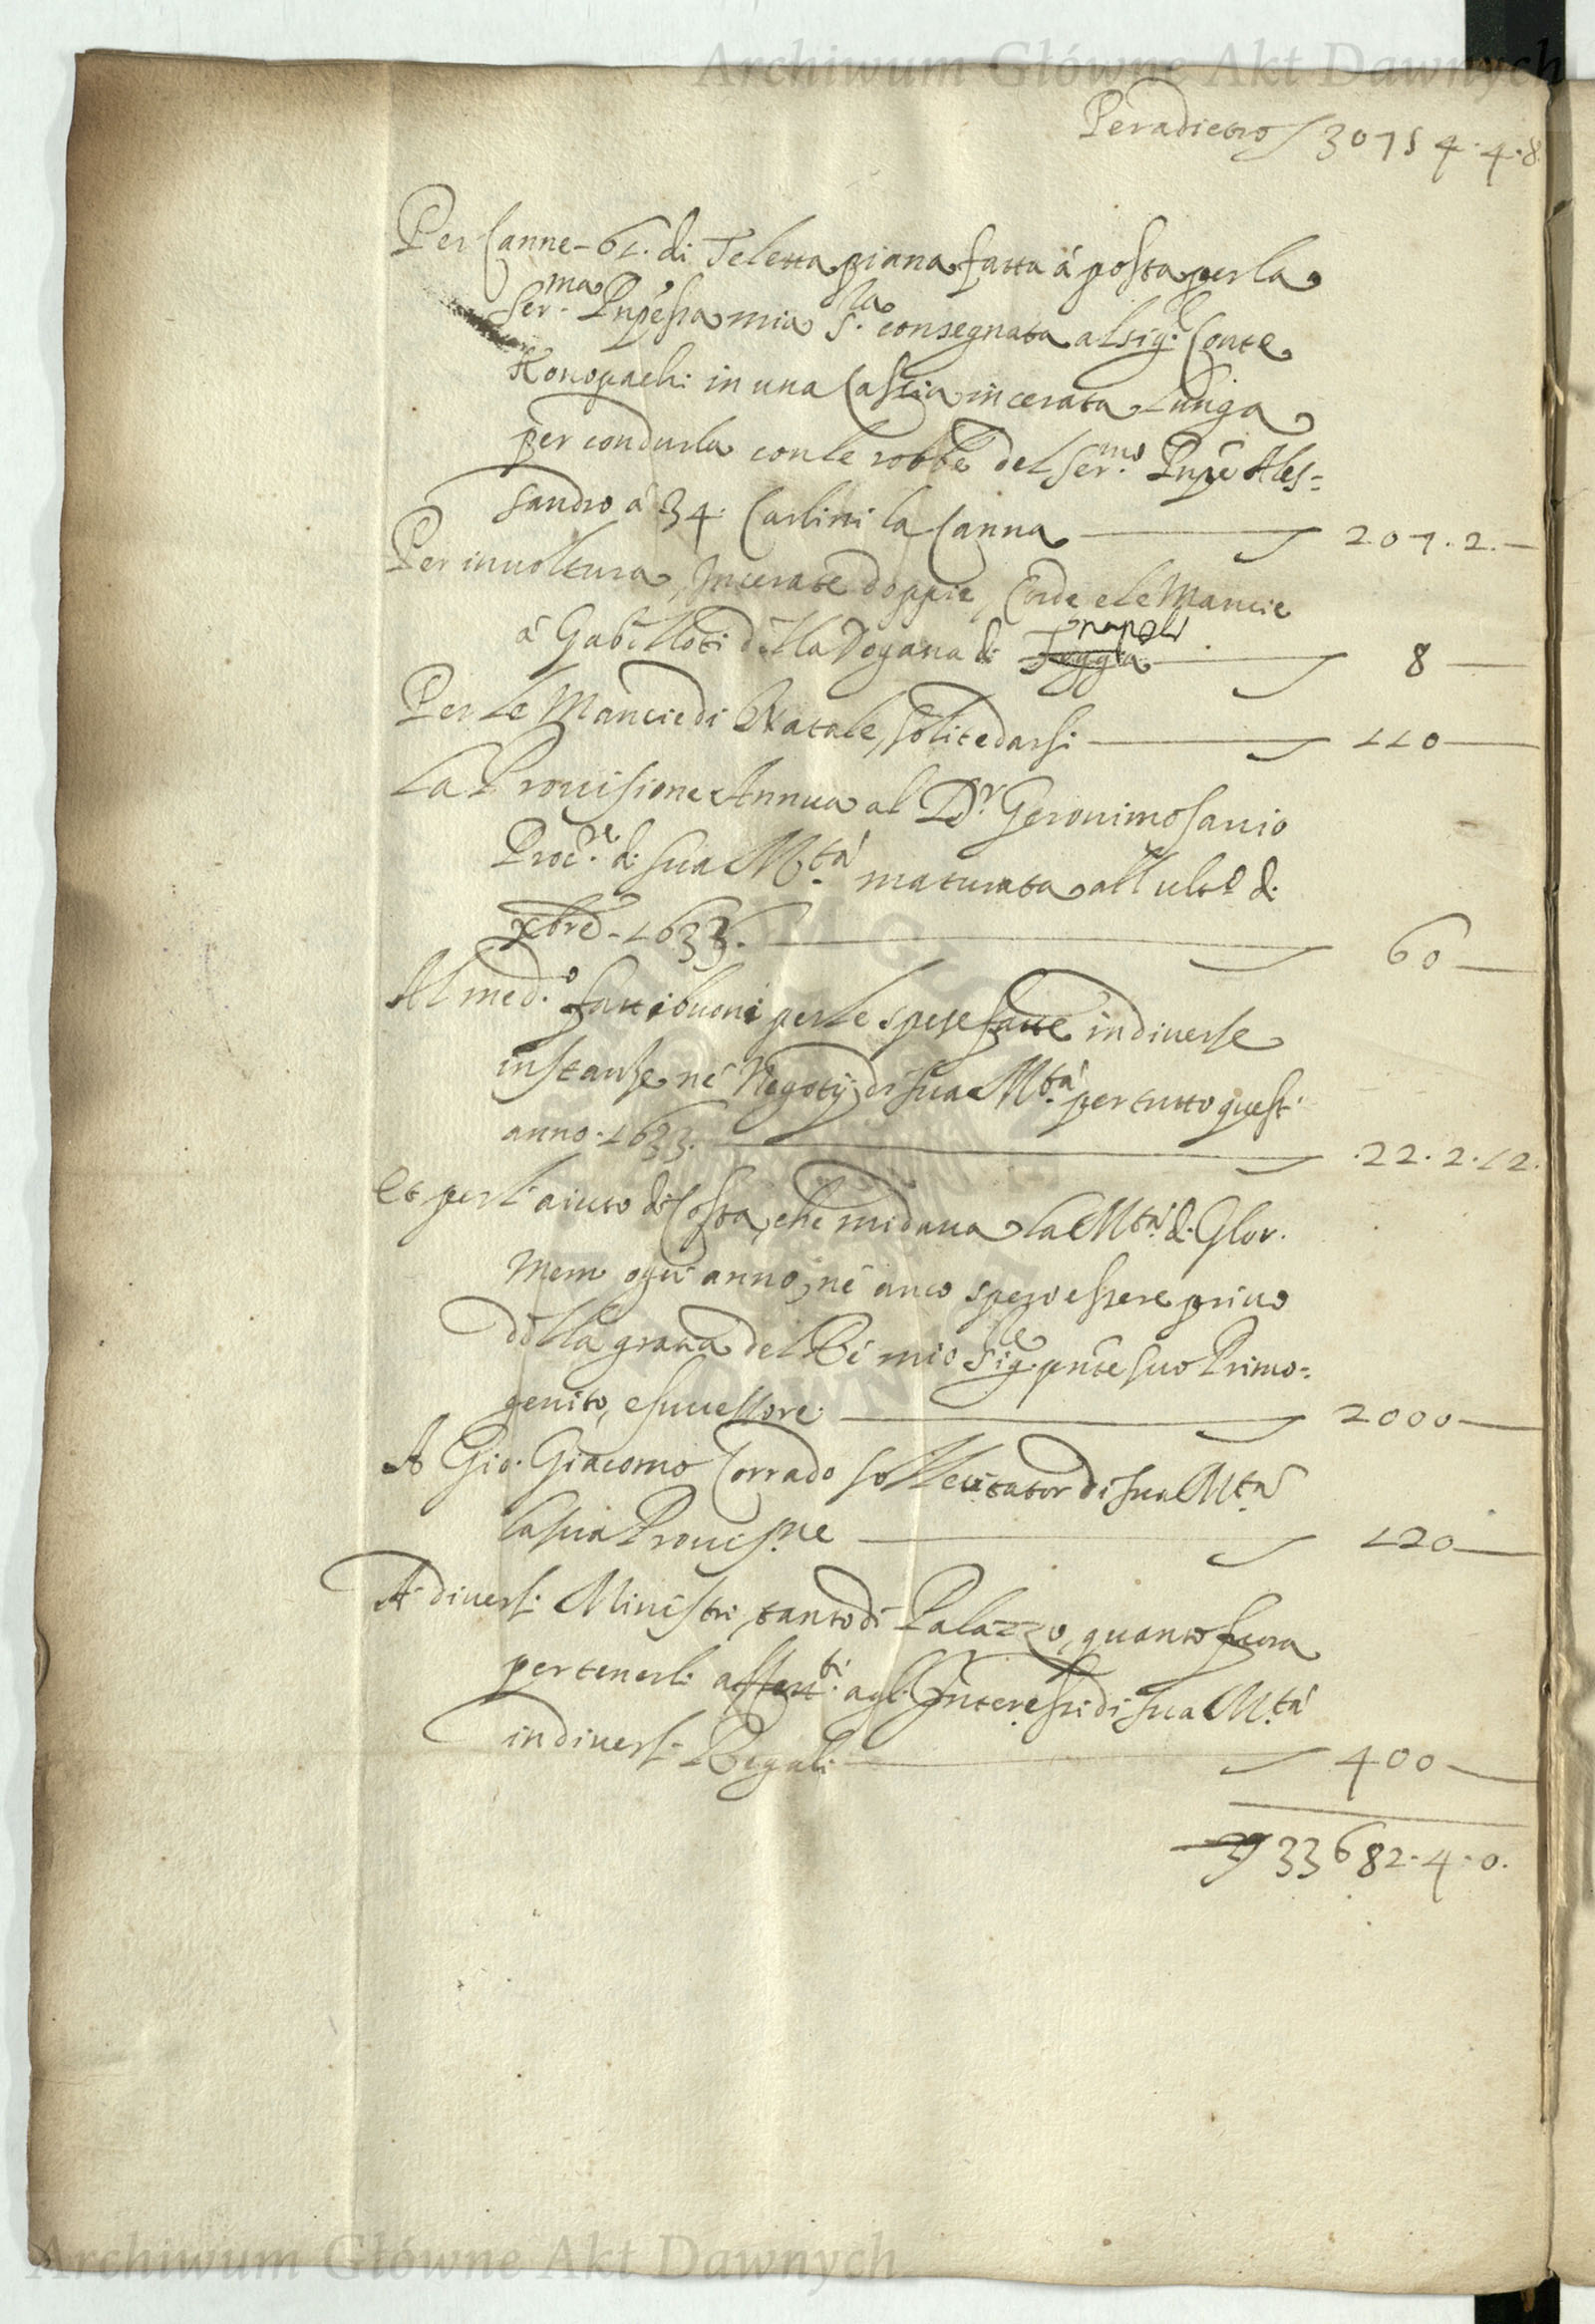 Archiwum Główne Akt Dawnych
Peradietro 30754.4.8
Per Canne-61. di Teletta piana fatta á posta per la
Ser.ma Prnp̃essa mia S.ra consegnata al Sig.r Conte
Konopachi in una Cassia incerata lunga
per condurla con le robbe del Ser.mo Prnp̃e Ales=
sandro á 34. Carlini la Canna 207.2.—
Per inuoltura, Incerate doppie, Corde e le Mancie
á Gabelloti della Dogana di Foggia napoli 8—
Per le Mancie di Natale, solite darsi 110—
La Prouisione Annua al D.r Geronimo Sauio
Proc.re di Sua M.tá maturata all ult.o di
xbre-1633. 60—
Al med.o fatti buoni per le spese fatte in diuerse
instanse ne Negotij di sua M.tá per tutto quest'
anno-1633. .22.2.12.
Et per l'aiuto di Costa, che mi daua la M.tá di Glor.
Mem ogni anno, ne anco spero essere priuo
della gratia del Ré mio Sig.re pnte suo Primo=
genito, e successore. 2000—
A Gio. Giacomo Corrado sollecitator di sua M.tá
la sua Prouis.ne 120—
A diuersi Ministri, tanto di Palazzo, quanto fuora
per tenerli affetti.ti agl'Interessi di sua M.tá
in diuersi Regali 400—
33682.4.0.
Archiwum Główne Akt Dawnych